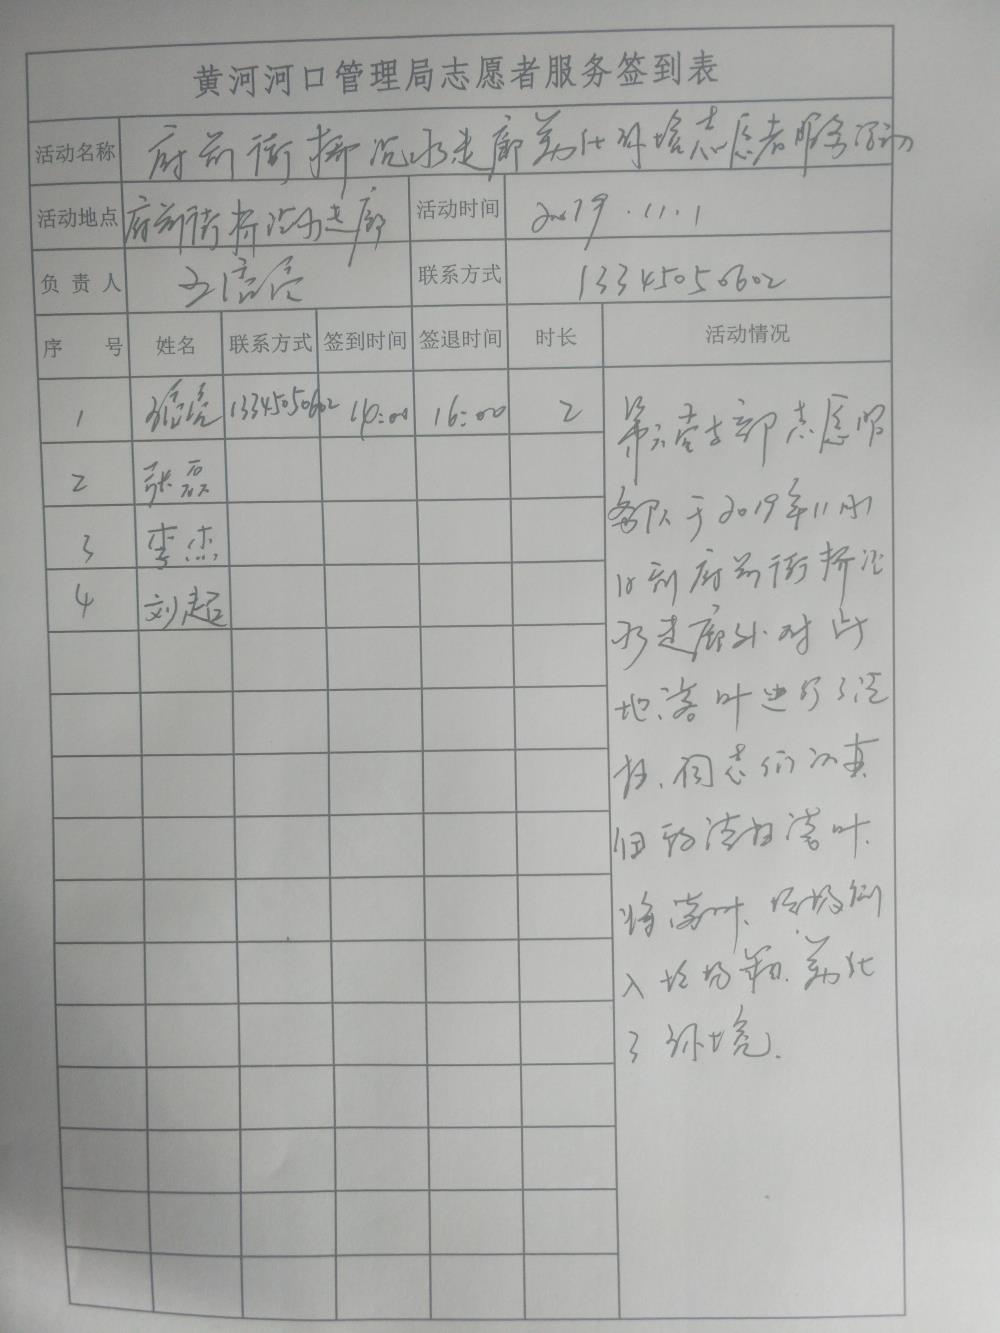 黄河河口管理局志愿者服务签到表
活动名称 府前街桥沉水走廊美化环境志愿者服务活动
活动地点 府前街桥沿水走廊 活动时间 2019.11.1
负责人 王信信 联系方式 13345050602
序号 姓名 联系方式 签到时间 签退时间 时长 活动情况
1 13345050602 14:00 16:00 2
2 张磊
3 李杰
4 刘超
支部志愿服
务队于2019年11月1
日到府前街桥沿
水走廊 对此
地落叶进行了清
扫,同志们认真
清扫落叶,
将落叶、垃圾倒
入垃圾箱,美化
了环境.